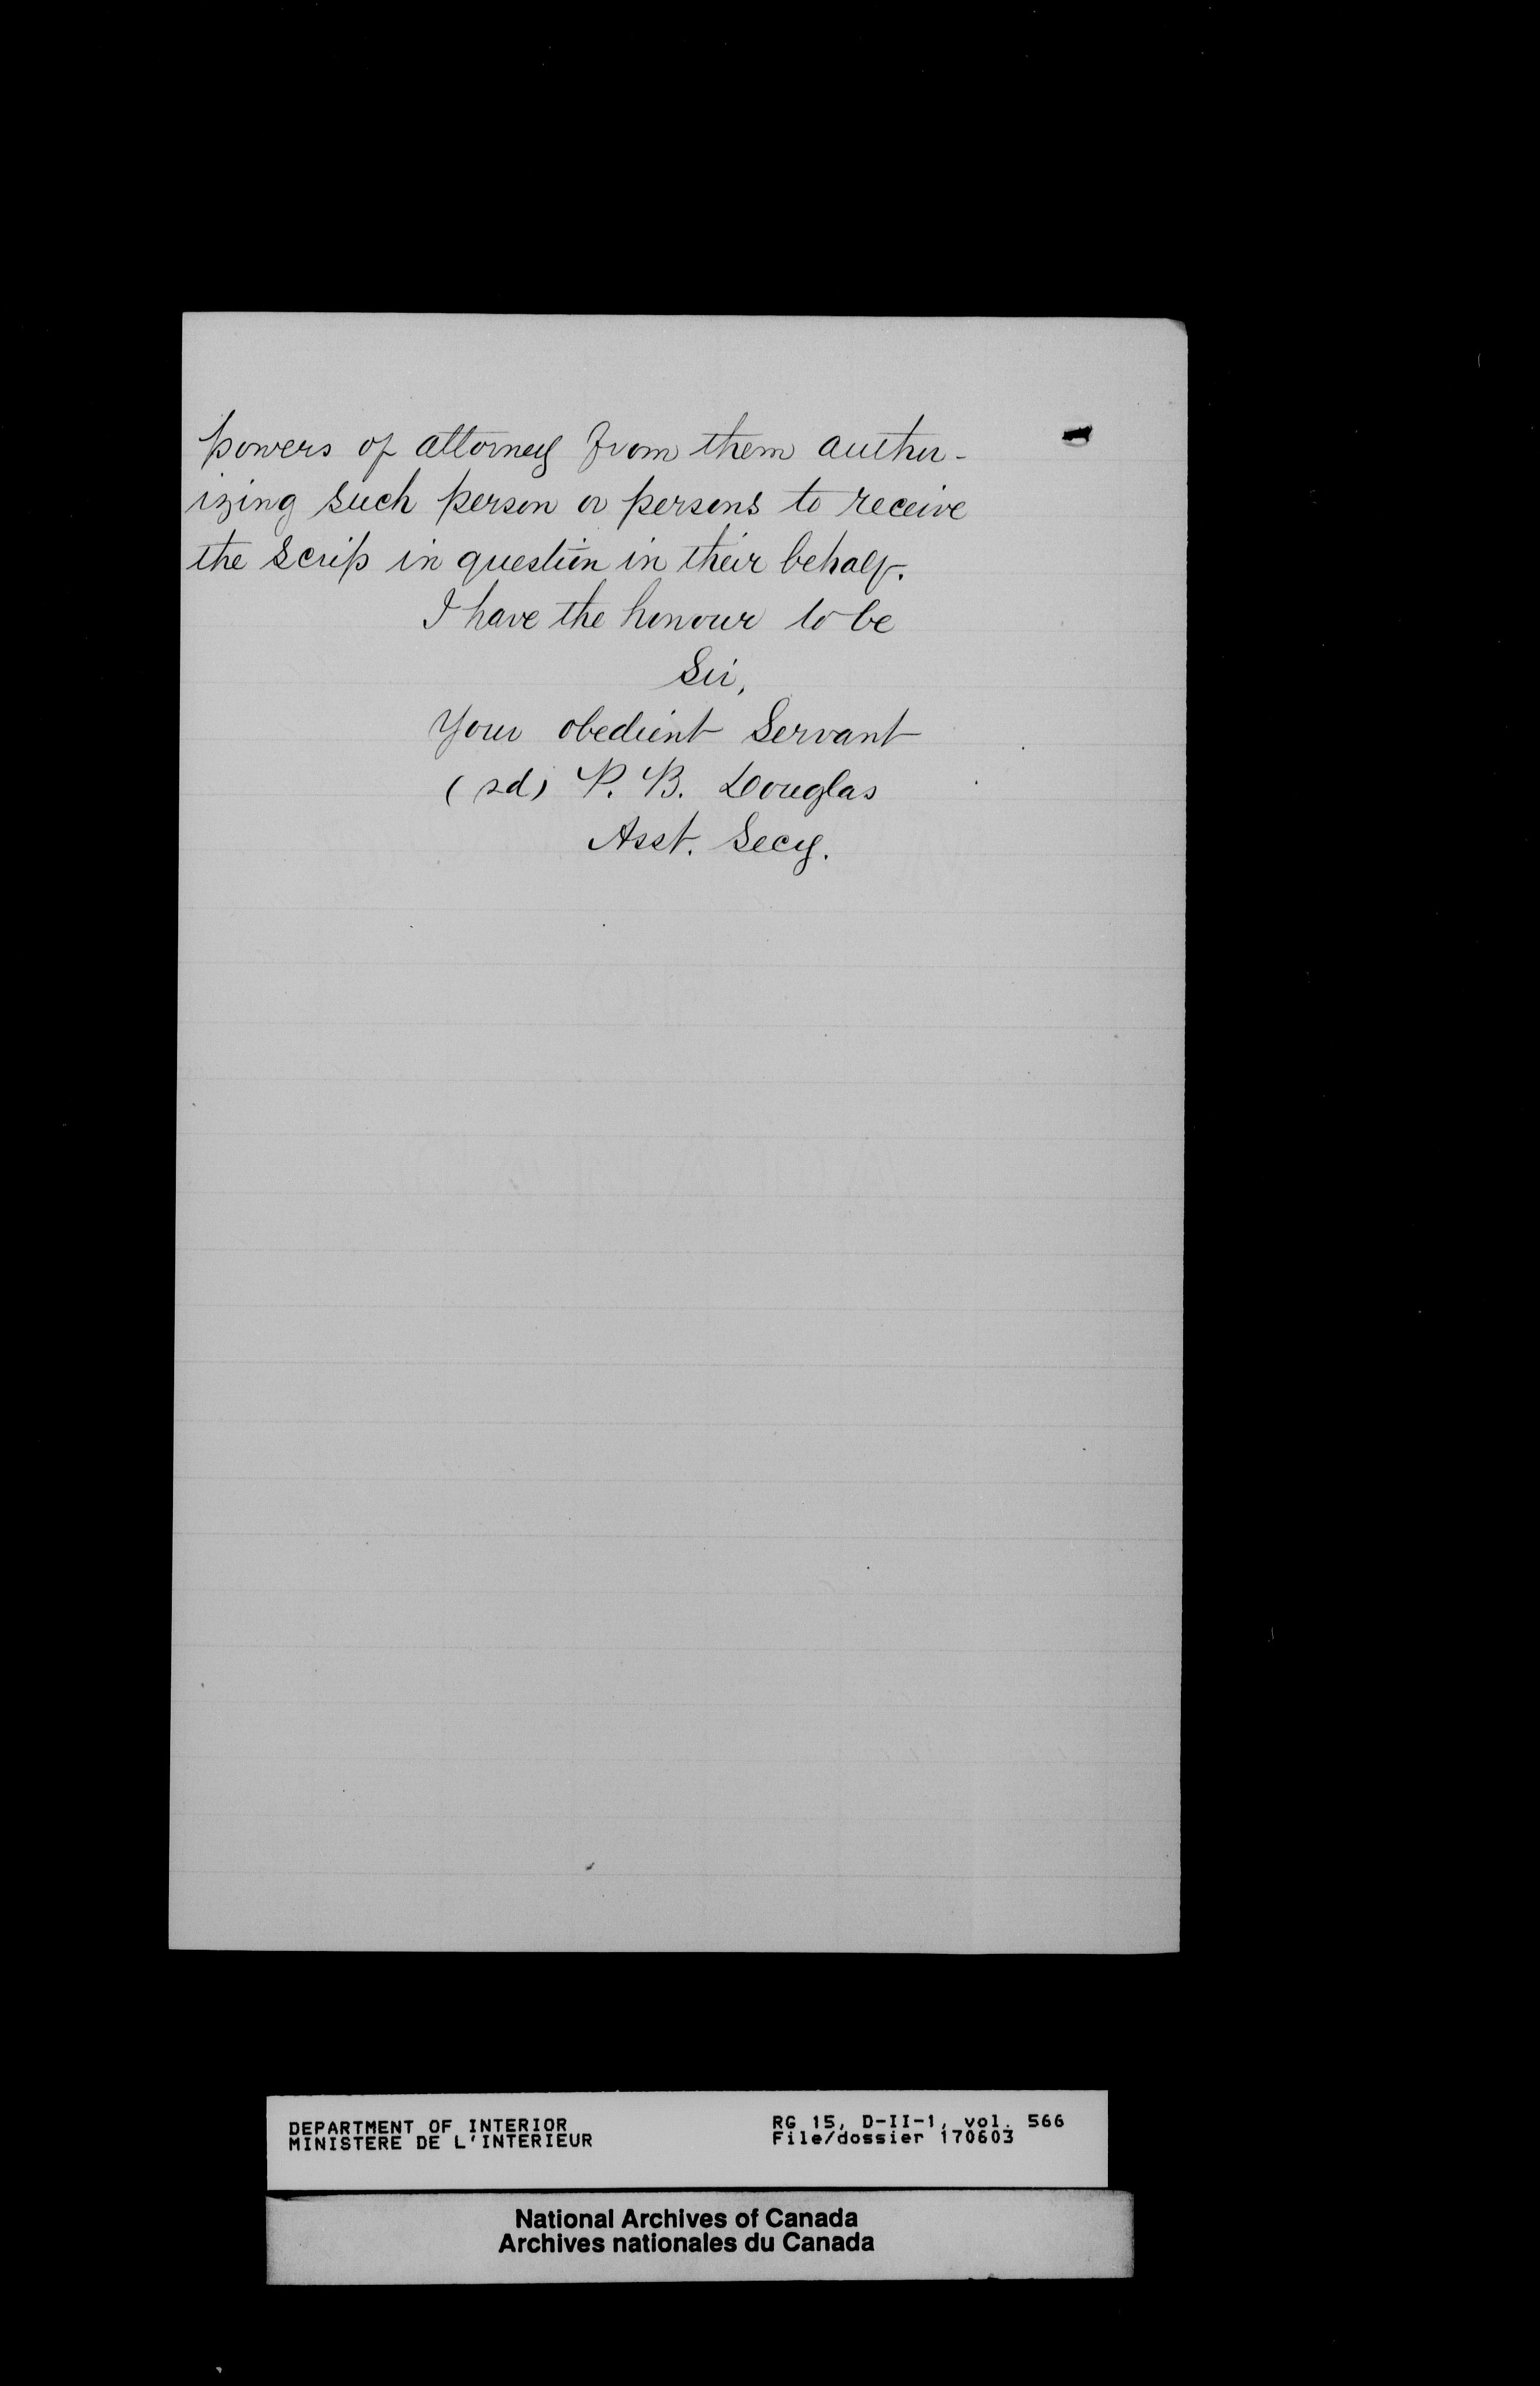 powers of attorney from them author-
izing such person or persons to receive
the scrip in question in their behalf.
I have the honour to be
Sir,
Your obedient Servant
(sd) P. B. Douglas
Asst. Secy.
DEPARTMENT OF INTERIOR
MINISTERE DE L'INTERIEUR
RG 15, D-II-1, vol. 566
File/dossier 170603
National Archives of Canada
Archives nationales du Canada